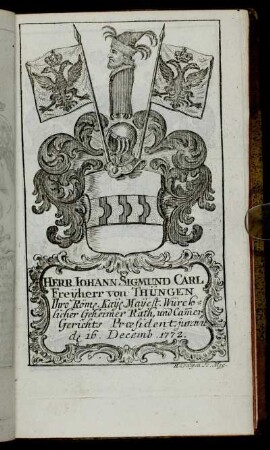 HERR IOHANN SIGMUND CARL
Freÿherr von THÜNGEN,
Ihro Röm: Kaÿs: Mayest: Würck=
licher Geheimer Rath, und Cam̄er
Gerichts Præsident, jurav:
d: 16. Decemb. 1772.